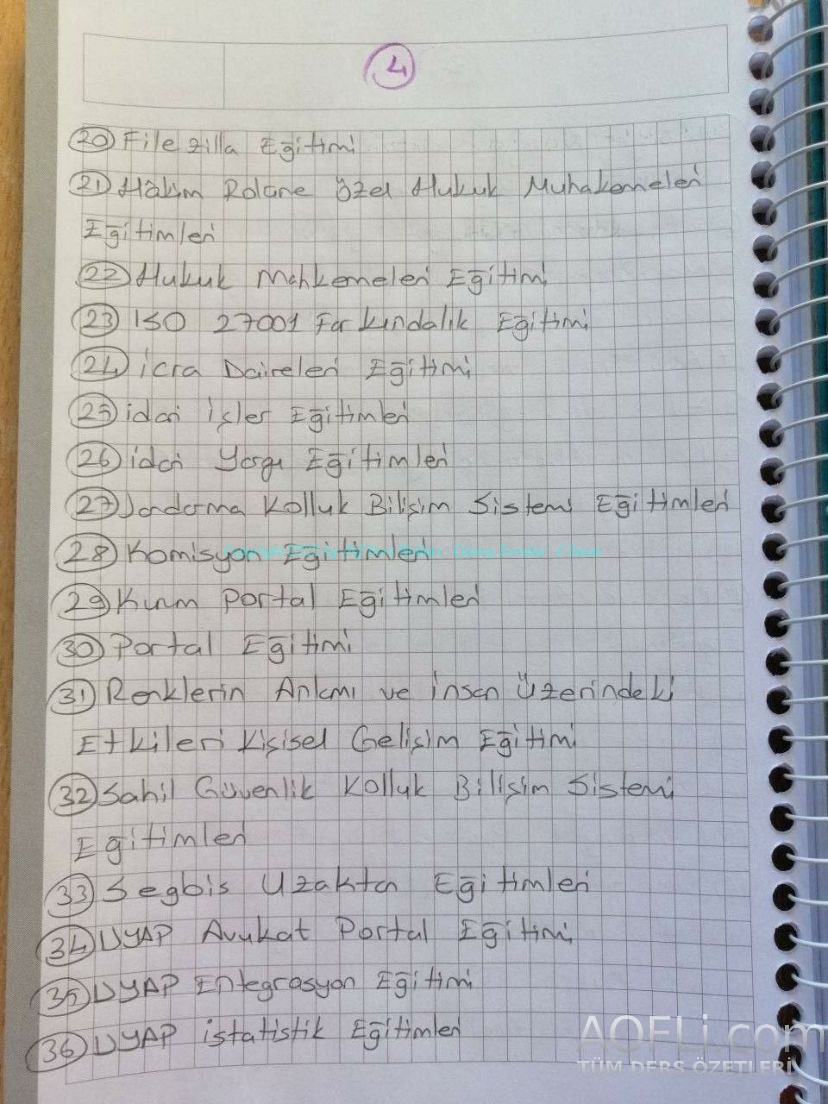 4
20 File zilla Eğitimi
21 Hakim Rolüne Özel Hukuk Muhakemeleri
Eğitimleri
22 Hukuk Mahkemeleri Eğitimi
23 ISO 27001 Farkındalık Eğitimi
24 İcra Daireleri Eğitimi
25 idari işler Eğitimleri
26 idari Yargı Eğitimleri
27 Jandarma Kolluk Bilişim Sistemi Eğitimleri
28 Komisyon Eğitimleri
29 Kurum Portal Eğitimleri
30 Portal Eğitimi
31 Renklerin Anlamı ve insan Üzerindeki
Etkileri Kişisel Gelişim Eğitimi
32 Sahil Güvenlik Kolluk Bilişim Sistemi
Eğitimleri
33 Segbis Uzaktan Eğitimleri
34 UYAP Avukat Portal Eğitimi
35 UYAP Entegrasyon Eğitimi
36 UYAP istatistik Eğitimleri
AOFLi.com
TÜM DERS ÖZETLERİ